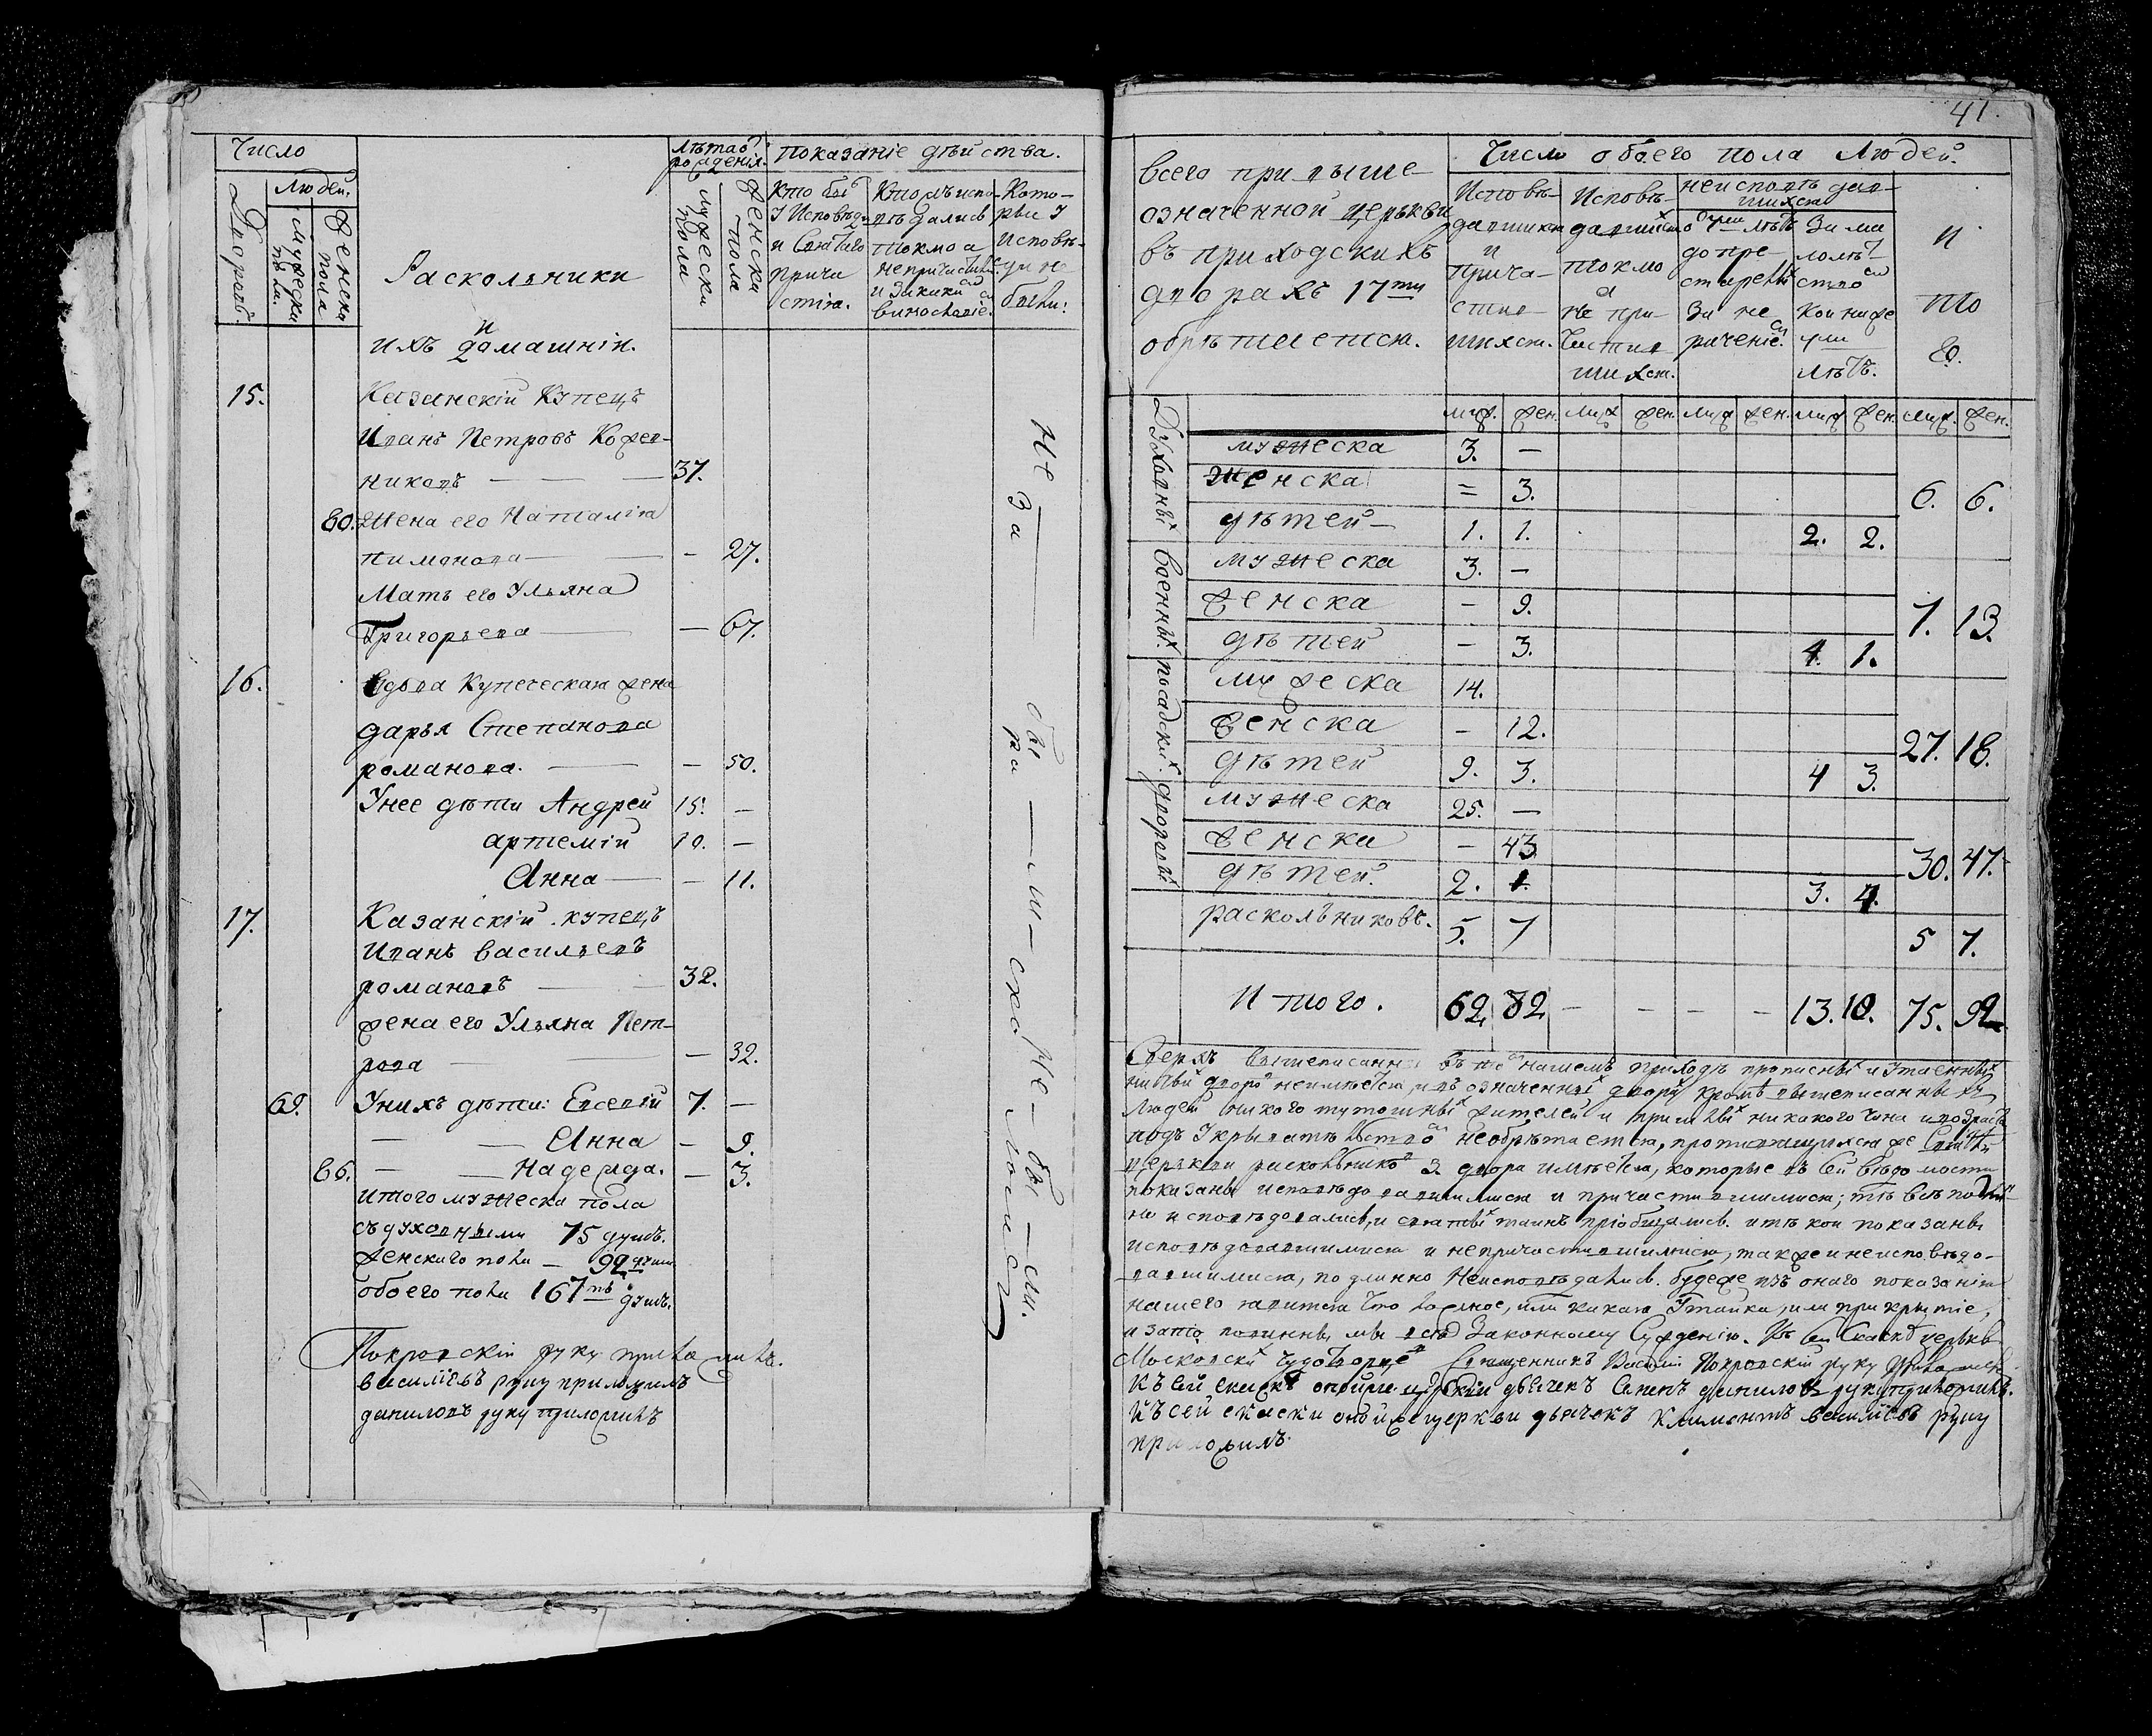 Число
Людей.
Дворовъ.
Мужеска пола.
Женска пола
Раскольники
и
ихъ домашнiи.
Лѣта ѿ рожденiя.
Мужеска пола
Женска пола
Показанiе дѣйства.
Кто былъ
У Исповѣди
и Святаго
Причастiя.
Кто исповѣдались
токмо а
непричастились
и за какимъ
винословiемъ.
Которыи У
исповѣди не
были:
15. Казанскiй Купецъ
Иванъ Петровъ Кожев-
никовъ — 37.
80. Жена его Наталiя
пимонова — 27.
Мать его Ульяна
Григорьева — 67.
16. Вдова Купеческая жена
дарья Степанова
романова. — 50.
Унее дѣти Андрей 15. —
артемiй 10. —
Анна — 11.
17. Казанскiй купецъ
Иванъ васильевъ
романовъ — 32.
жена его Ульяна Пет-
рова — 32.
69. Унихъ дѣти: Евсевiй 7. —
— Анна — 9.
86. — Надежда. — 3.
итого мужеска пола
съ духовными 75 душъ.
женскаго пола — 92 души
обоего пола 167мь душъ.
Не — бы — ли — у — испо
За — ра — ско — ломъ
Покровскiй руку приложилъ.
василiевъ руку приложилъ
даниловъ руку приложилъ
41.
всего при выше
означенной церькви
въ приходскихъ
дворахъ 17ти
обрѣтается.
Число обоего пола людей.
Исповѣ-
давшихся
и
прича-
стив-
шихся.
Исповѣ-
давшихся
токмо
а
не при-
частив
шихся.
неисповѣдав-
шихся
ѿ 7ми лѣтъ
до пре-
старелыхъ
за не
раченiемъ.
За ма
лолѣт-
ством
кои ниже
7ми
лѣтъ.
И
то
го.
муж. жен. муж жен. муж жен. муж жен. муж. жен.
Духовныхъ
мужеска 3. —
Женска = 3.
дѣтей — 1. 1. 2. 2.
6. 6.
Военныхъ.
мужеска 3. —
женска — 9.
дѣтей — 3. 4. 1.
7. 13.
посадскихъ.
мужеска 14.
женска — 12.
дѣтей 9. 3. 4 3.
27. 18.
дворовыхъ
мужеска 25. —
женска — 43
дѣтей. 2. 1. 3. 4.
30. 47.
раскольниковъ. 5. 7 5 7.
Итого. 62. 82 — — — — 13. 10. 75. 92
Сверхъ вышеписанных въ нашемъ приходѣ прописныхъ и утаенныхъ
дворовъ неимѣется, и въ означенныхъ дворахъ кромѣ вышеписанныхъ
людей никого тутошныхъ жителей и пришлыхъ никакого чина и возраста
подъ Укрывательством необрѣтается,
церькви раскольниковъ 3 двора имѣется, которые въ сей вѣдомости
показаны исповѣдовавшимися и причастившимися; тѣ всѣ подлин-
но исповѣдовались, и святыхъ таинъ прiобщались. и тѣ кои показаны
исповѣдовавшимися и непричастившимися, также и неисповѣдо-
вавшимися, подлинно неисповѣдались. будеже въ онаго показанiя
нашего явится что ложное, или какая Утайка, или прикрытiе,
и зато повинны мы Законному Сужденiю. Къ сей Скаскѣ церькви
Московскихъ чудотворцевъ Священникъ Василiй Покровскiй руку приложилъ
Къ сей скаскѣ онойже церькви дьячекъ даниловъ руку приложилъ.
Къ сей скаски онойже церькви дьячекъ Климентъ василiевъ руку
приложилъ.